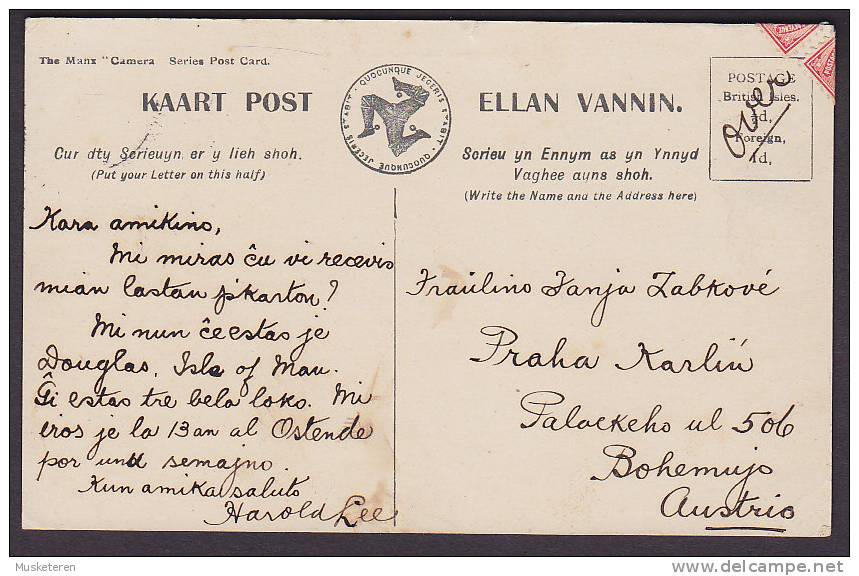 The Manx "Camera Series Post Card.
KAART POST
Cur dty Scrieuyn er y lieh shoh.
(Put your Letter on this half)
QUOCUNQUE JECERIS STABIT · QUOCUNQUE JECERIS STABIT ·
ELLAN VANNIN.
Scrieu yn Ennym as yn Ynnyd
Vaghee ayns shoh.
(Write the Name and the Address here)
POSTAGE
British Isles.
½d,
Foreign,
1d,
Over
Kara amikino,
Mi miras ĉu vi recevis
mian lastan p'karton?
Mi nun ĉeestas je
Douglas, Isle of Man.
Ĝi estas tre bela loko. Mi
iros je la 13an al Ostende
por unu semajno.
Kun amika saluto
Harold Lee
Fraŭlino Janja Zabkové
Praha Karlín
Palackeho ul 506
Bohemujo
Austrio
Musketeren
delcampe.net